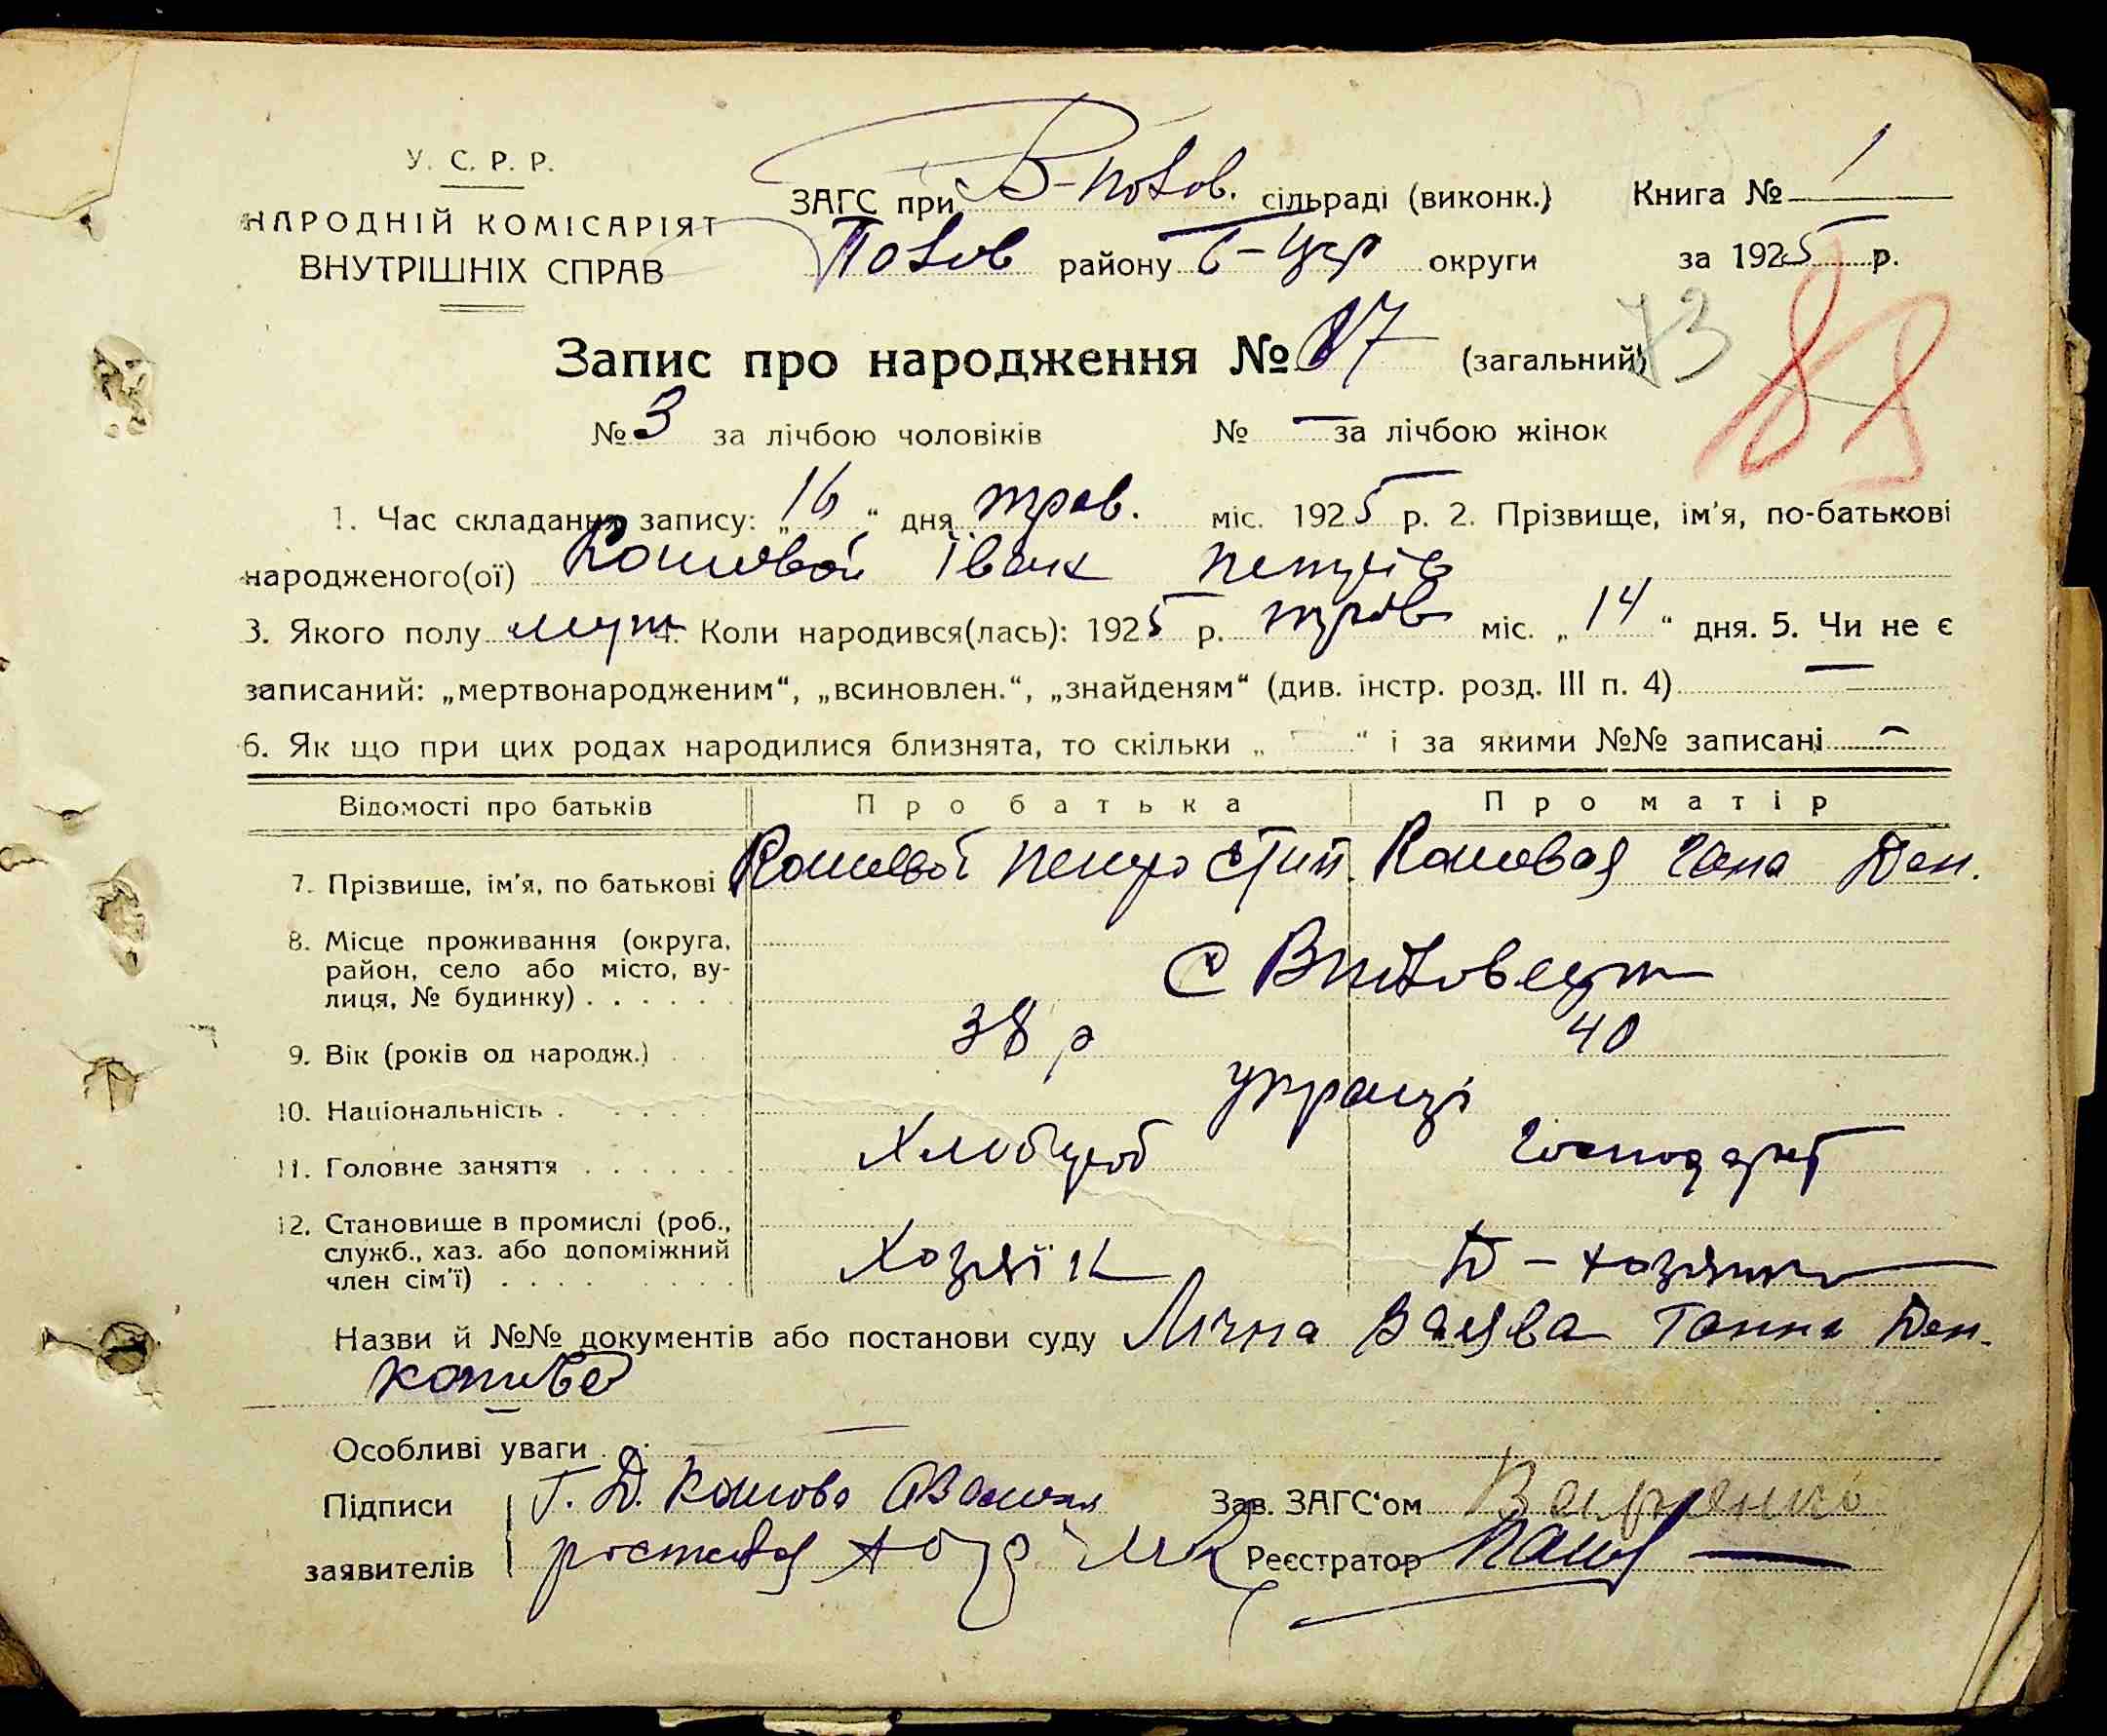 У. С. Р. Р.
НАРОДНІЙ КОМІСАРІЯТ
ВНУТРІШНІХ СПРАВ
ЗАГС при сільраді (виконк.) Книга № 1
району Б-Цер округи за 1925 р.
Запис про народження № 87 (загальний) 73 88
№ 3 за лічбою чоловіків № — за лічбою жінок
1. Час складання запису: „ 16 “ дня трав. міс. 1925 р. 2. Прізвище, ім'я, по-батькові
народженого(ої) Кошовой Іван Петрів
3. Якого полу муж 4. Коли народився(лась): 1925 р. трав міс. „ 14 “ дня. 5. Чи не є
записаний: „мертвонародженим“, „всиновлен.“, „знайденям“ (див. інстр. розд. III п. 4) —
6. Як що при цих родах народилися близнята, то скільки „ — “ і за якими №№ записані —
Відомості про батьків Про батька Про матір
7. Прізвище, ім'я, по батькові Кошовой Петро Кошовая Гана Дем.
8. Місце проживання (округа,
район, село або місто, ву-
лиця, № будинку) . . . . . . с
9. Вік (років од народж.) . . 38 р 40
10. Національність . . . . . . українці
11. Головне заняття . . . . . . Хлібороб Господар
12. Становище в промислі (роб.,
служб., хаз. або допоміжний
член сім'ї) . . . . . . . . . Хозяїн Д - хозяйка
Назви й №№ документів або постанови суду Лічна заява Ганни Дем.
Кошово
Особливі уваги —
Підписи Г. Д. Кошова Зав. ЗАГС'ом
заявителів Реєстратор